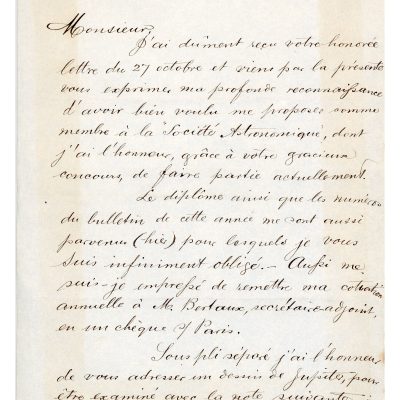 Monsieur,
J'ai dûment reçu votre honorée
lettre du 27 octobre et viens par la présente
vous exprimer ma profonde reconnaissance
d'avoir bien voulu me proposer comme
membre à la Société Astronomique, dont
j'ai l'honneur, grâce à vôtre gracieux
concours, de faire partie actuellement.
Le diplôme ainsi que les numéros
du bulletin de cette année me sont aussi
parvenus (hier) pour lesquels je vous
suis infiniment obligé. — Aussi me
suis-je impressé de remettre ma cotisation
annuelle à M. Bertaux, secrétaire-adjoint,
en un chèque s/ Paris.
Sous pli séparé j'ai l'honneur
de vous adresser un dessin de Jupiter, pour
être examiné avec la note suivante :